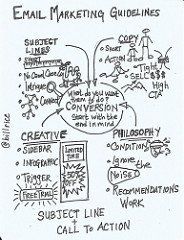 EMAIL MARKETING GUIDELINES
SUBJECT
LINES
• SHORT
• Intrigue
COPY
• SHORT
• ACTION
Tight
SELL $$$
High
What do you want
them to do?
CONVERSION
Start with the
end in mind
CREATIVE
• SIDEBAR
• INFOGRAPHIC
• TRIGGER
• FREE TRIAL
LIMITED
TIME
50%
OFF
PHILOSOPHY
• CONDITION
• Ignore
the
NOISE
• RECOMMENDATIONS
WORK
@billrice
SUBJECT LINE
+
CALL TO ACTION